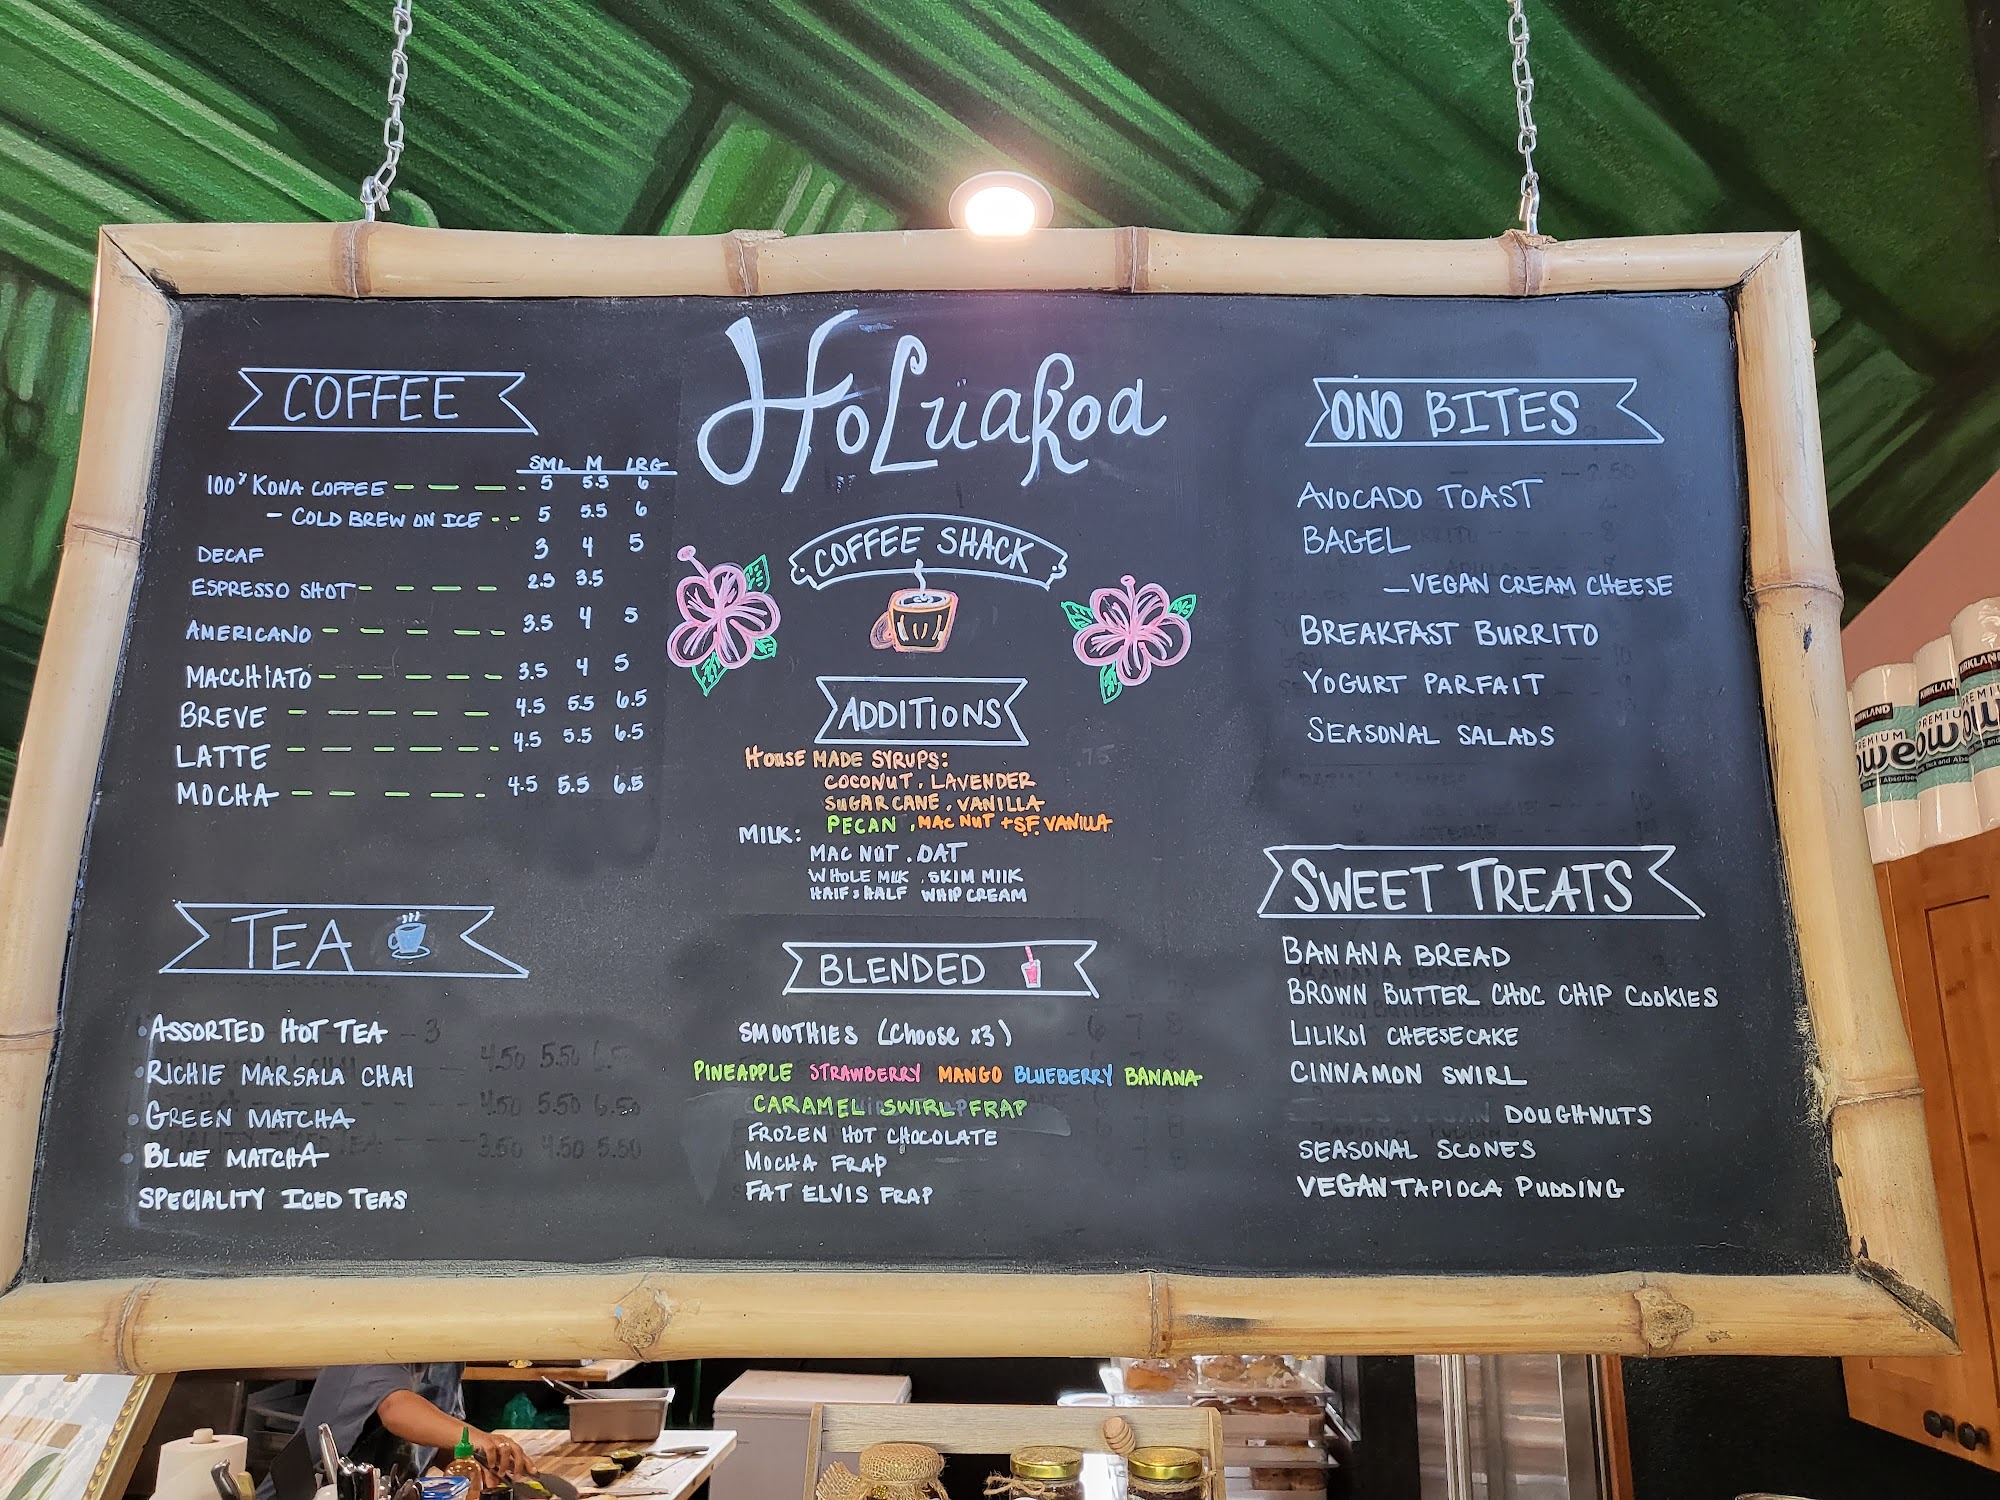 HoLuaKoa
COFFEE SHACK
COFFEE
SML M LRG
100% KONA COFFEE 5 5.5 6
- COLD BREW ON ICE 5 5.5 6
DECAF 3 4 5
ESPRESSO SHOT 2.5 3.5
AMERICANO 3.5 4 5
MACCHIATO 3.5 4 5
BREVE 4.5 5.5 6.5
LATTE 4.5 5.5 6.5
MOCHA 4.5 5.5 6.5
TEA
ASSORTED HOT TEA - 3
RICHIE MARSALA CHAI 4.50 5.50 6.5
GREEN MATCHA 4.50 5.50 6.50
BLUE MATCHA 3.50 4.50 5.50
SPECIALITY ICED TEAS
ADDITIONS
HOUSE MADE SYRUPS:
COCONUT, LAVENDER
SUGAR CANE, VANILLA
PECAN, MAC NUT + S.F. VANILLA
MILK:
MAC NUT, OAT
WHOLE MILK, SKIM MILK
HALF & HALF WHIP CREAM
BLENDED
SMOOTHIES (Choose x3) 6 7 8
PINEAPPLE STRAWBERRY MANGO BLUEBERRY BANANA
CARAMEL SWIRL FRAP
FROZEN HOT CHOCOLATE
MOCHA FRAP
FAT ELVIS FRAP
ONO BITES
AVOCADO TOAST
BAGEL
- VEGAN CREAM CHEESE
BREAKFAST BURRITO
YOGURT PARFAIT
SEASONAL SALADS
SWEET TREATS
BANANA BREAD
BROWN BUTTER CHOC CHIP COOKIES
LILIKOI CHEESECAKE
CINNAMON SWIRL
DOUGHNUTS
SEASONAL SCONES
VEGAN TAPIOCA PUDDING
KIRKLAND
KIRKLAND
PREMIUM